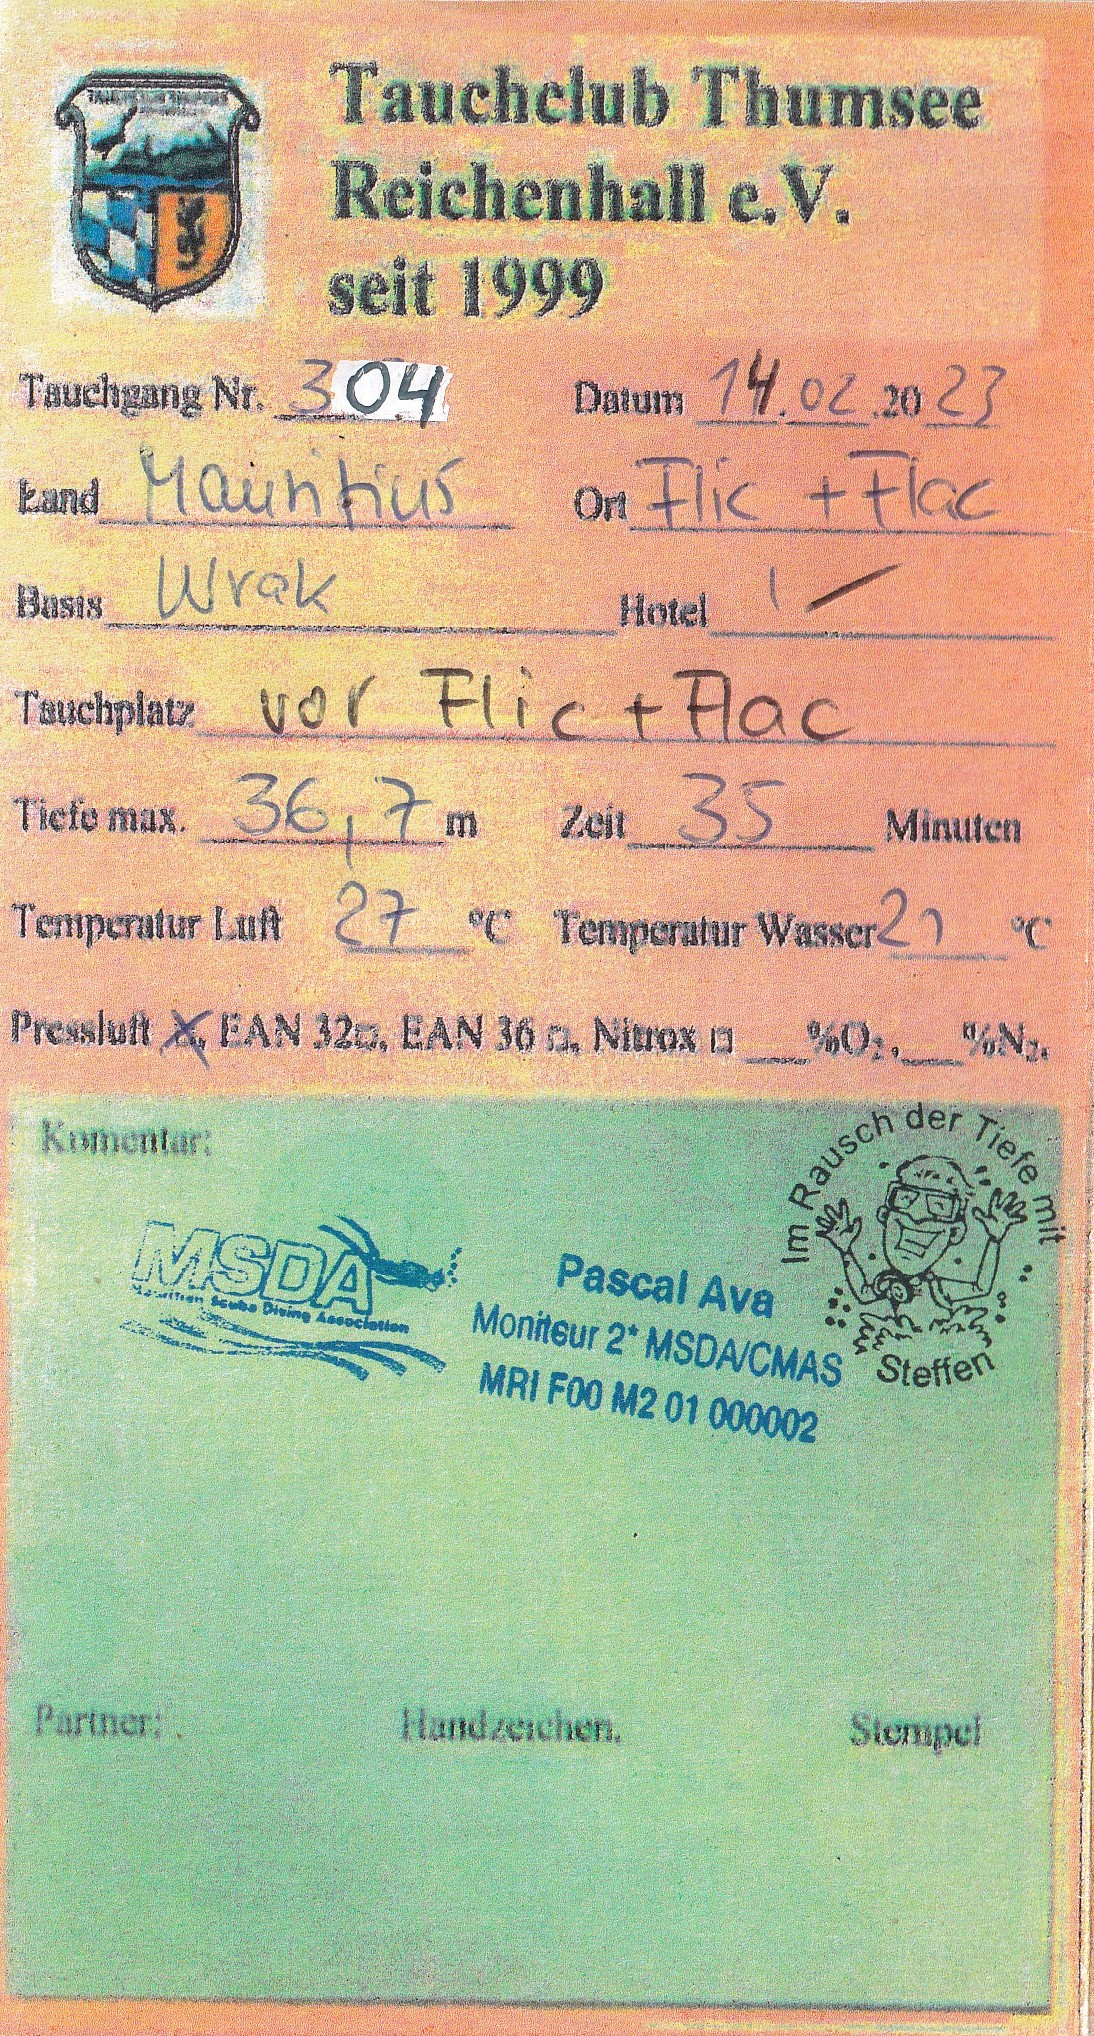 Tauchclub Thumsee
Reichenhall e.V.
seit 1999
Tauchgang Nr. 304 Datum 14.02.2023
Land Mauritius Ort Flic + Flac
Basis Wrak Hotel /
Tauchplatz vor Flic + Flac
Tiefe max. 36,7 m Zeit 35 Minuten
Temperatur Luft 27 °C Temperatur Wasser 21 °C
Pressluft X, EAN 32□, EAN 36 □, Nitrox □ ___%O₂,___%N₂.
Komentar:
Im Rausch der Tiefe mit
Steffen
MSDA
Mauritian Scuba Diving Association
Pascal Ava
Moniteur 2* MSDA/CMAS
MRI F00 M2 01 000002
Partner: Handzeichen. Stempel